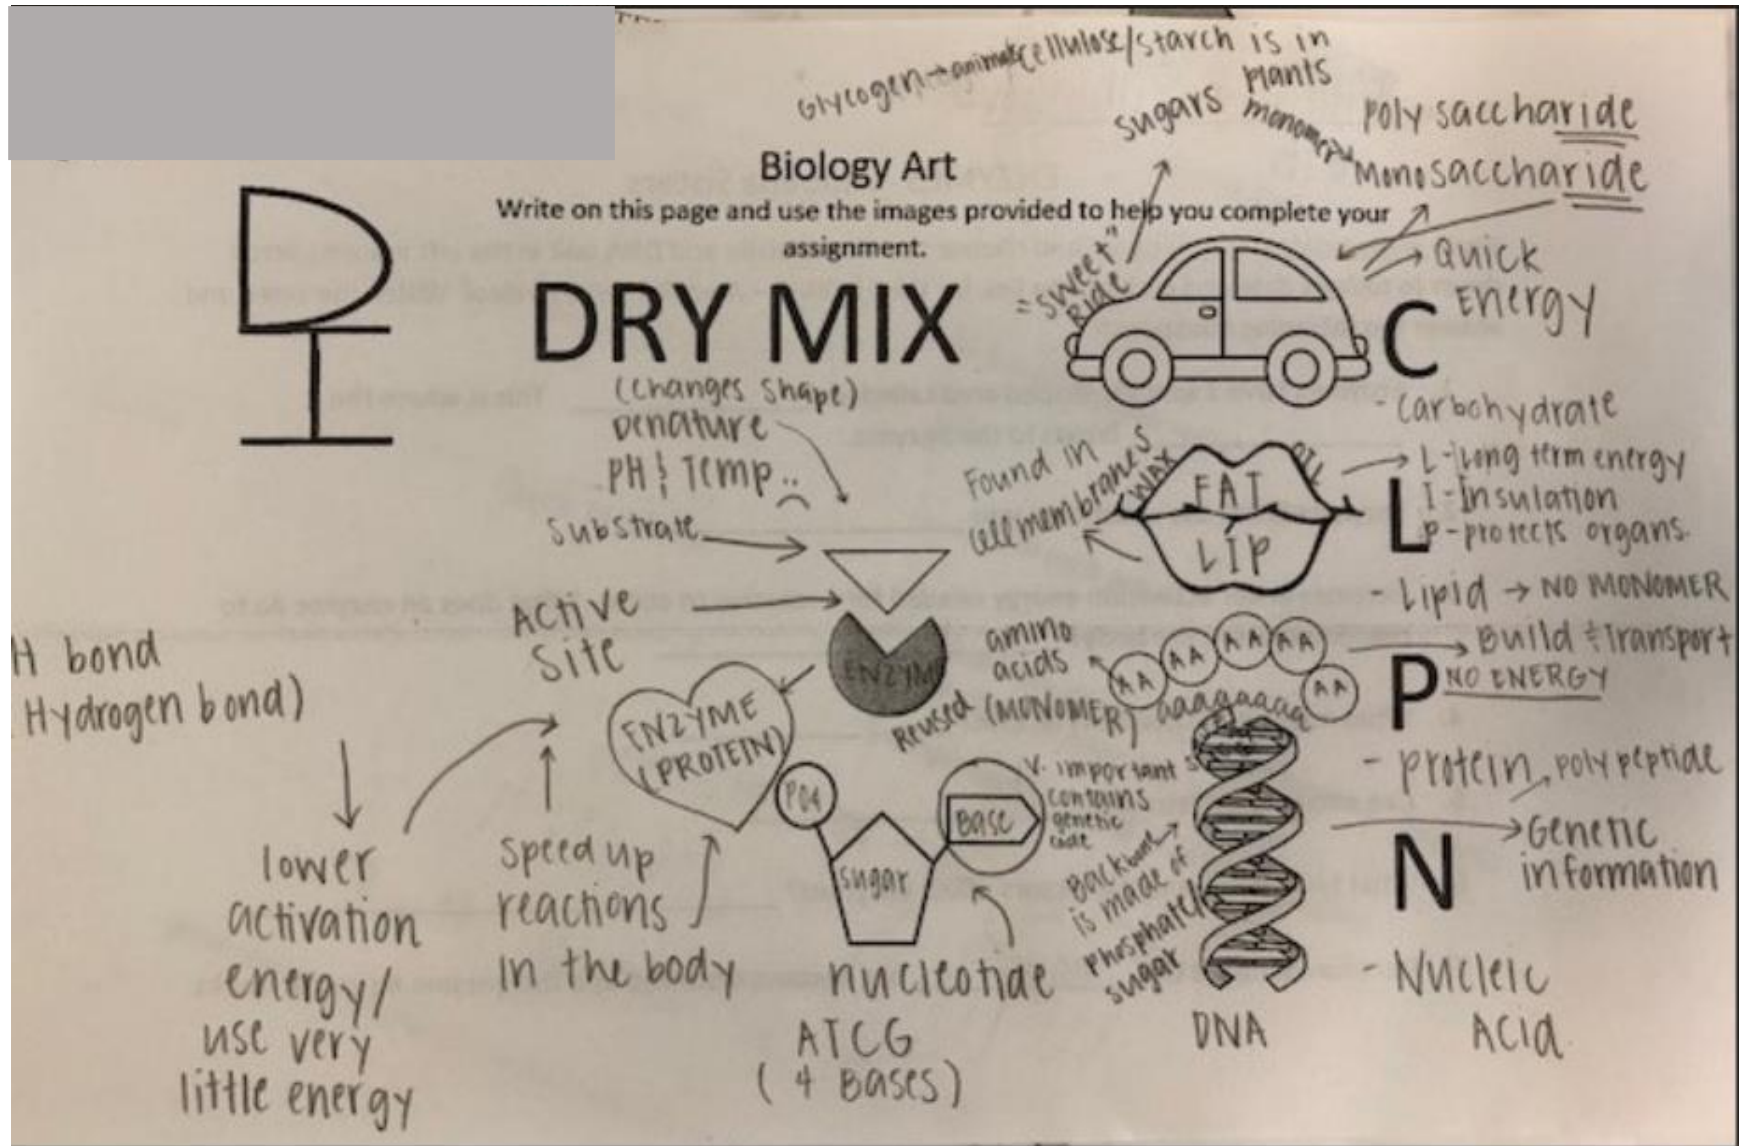 Glycogen→animals cellulose/starch is in
plants
sugars
monomer
Polysaccharide
Monosaccharide
Biology Art
Write on this page and use the images provided to help you complete your
assignment.
DRY MIX
="sweet"
RIDE
Quick
Energy
C
- Carbohydrate
(Changes Shape)
Denature
PH & Temp..
Substrate
Active
Site
ENZYME
Reused
ENZYME
(PROTEIN)
Found in
cell membranes
WAX
OIL
FAT
LIP
L
L-Long term energy
I-Insulation
P-protects organs.
- Lipid → NO MONOMER
amino
acids
(MONOMER)
AA
AA
AA
AA
AA
P
Build & Transport
NO ENERGY
- protein, polypeptide
H bond
Hydrogen bond)
lower
activation
energy/
use very
little energy
speed up
reactions
in the body
PO4
sugar
Base
V. important
contains
genetic
code
nucleotide
ATCG
(4 Bases)
Backbone
is made of
phosphate/
sugar
DNA
N
Genetic
information
- Nucleic
Acid